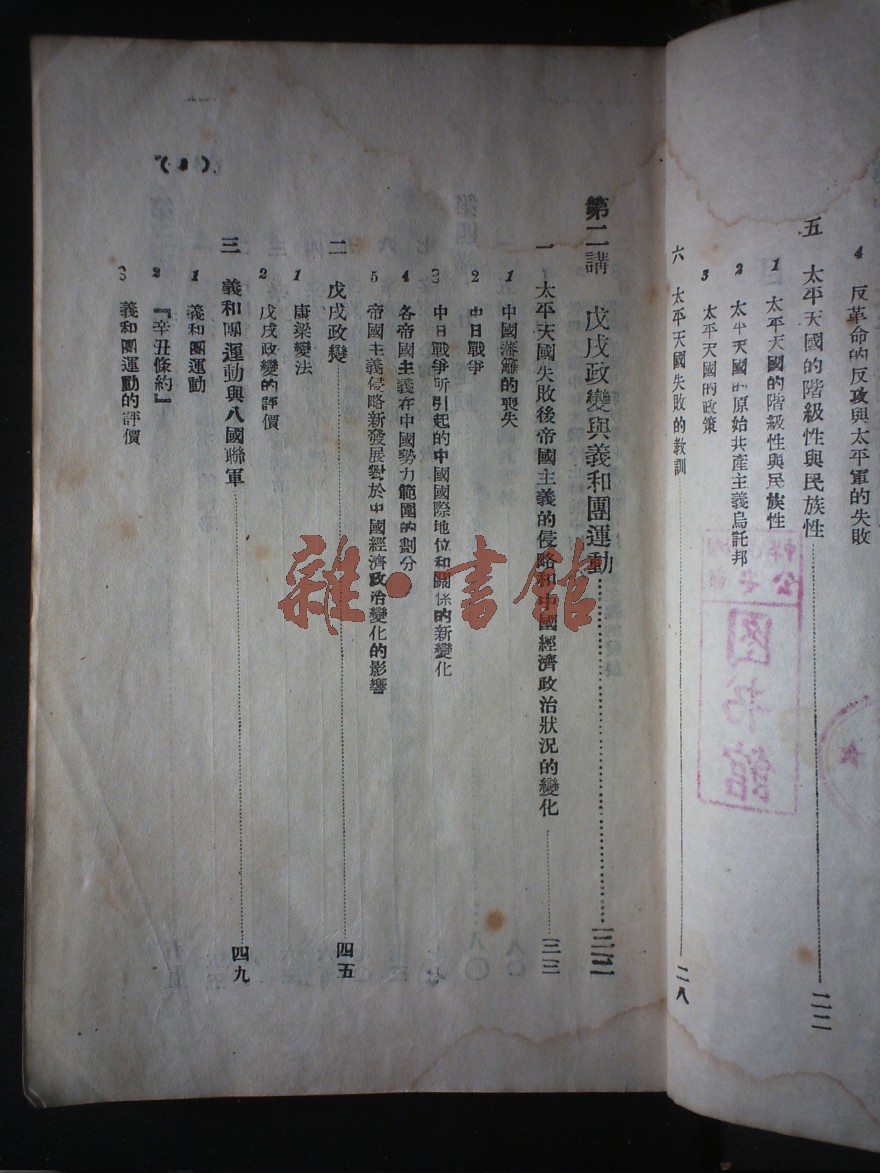 4 反革命的反攻與太平軍的失敗
五 太平天國的階級性與民族性……二二
1 太平天國的階級性與民族性
2 太平天國的原始共產主義烏託邦
3 太平天國的政策
六 太平天國失敗的教訓……二八
第二講 戊戌政變與義和團運動……三三
一 太平天國失敗後帝國主義的侵略和中國經濟政治狀況的變化……三三
1 中國藩籬的喪失
2 中日戰爭
3 中日戰爭所引起的中國國際地位和關係的新變化
4 各帝國主義在中國勢力範圍的劃分
5 帝國主義侵略新發展對於中國經濟政治變化的影響
二 戊戌政變……四五
1 康梁變法
2 戊戌政變的評價
三 義和團運動與八國聯軍……四九
1 義和團運動
2 『辛丑條約』
3 義和團運動的評價
雜·書館
图书馆